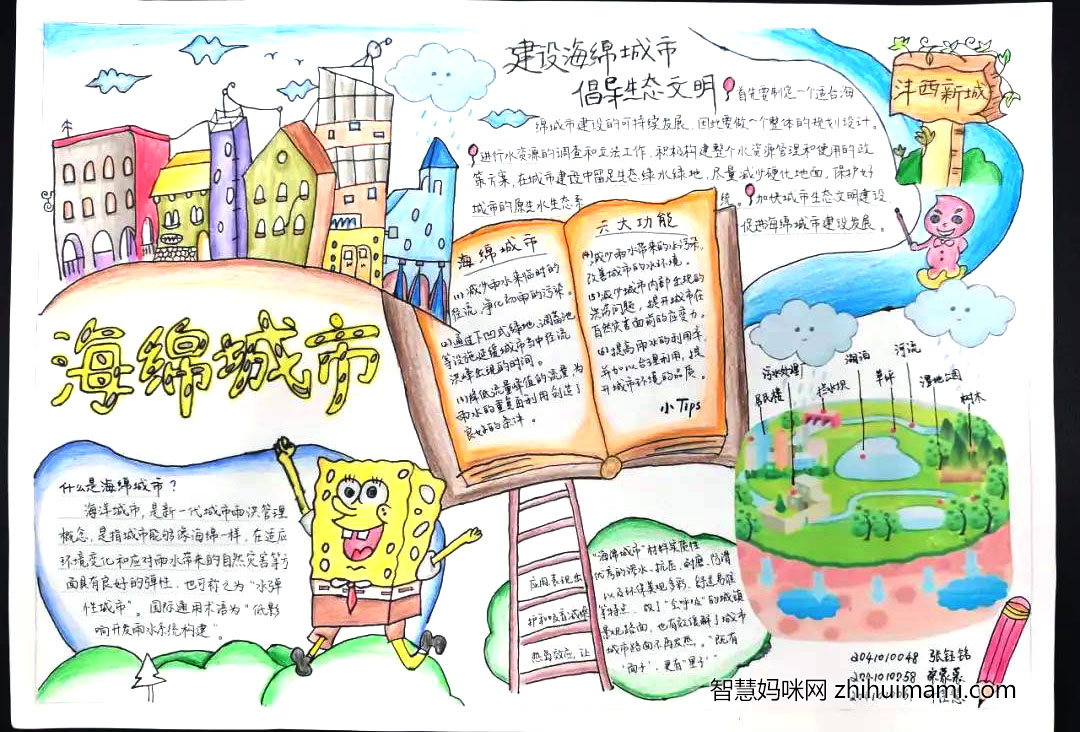 建设海绵城市
倡导生态文明
首先要制定一个适合海
绵城市建设的可持续发展、因此要做一个整体的规划设计。
进行水资源的调查和立法工作,积极构建整个水资源管理和使用的政
策方案,在城市建设中留足生态绿水绿地,尽量减少硬化地面,保护好
城市的原生水生态系统。
加快城市生态文明建设
促进海绵城市建设发展。
沣西新城
海绵城市
海绵城市
(1)减少雨水来临时的
径流,净化初雨的污染。
(2)通过下凹式绿地、调蓄池
等设施延缓城市当中径流
洪峰出现的时间。
(3)降低流量峰值的流量为
雨水的重复再利用创造了
良好的条件。
六大功能
(4)减少雨水带来的水污染,
改善城市的水环境。
(5)减少城市内部出现的
洪涝问题,提升城市在
自然灾害面前的应变力。
(6)提高雨水的利用率,
并加以合理利用,提
升城市环境的品质。
小Tips
什么是海绵城市?
海洋城市,是新一代城市雨洪管理
概念,是指城市能够像海绵一样,在适应
环境变化和应对雨水带来的自然灾害等方
面具有良好的弹性,也可称之为“水弹
性城市”。国际通用术语为“低影
响开发雨水系统构建”。
污水处理
湖泊
河流
居民楼
拦水坝
草坪
湿地公园
树木
“海绵城市”材料实质性
应用表现出
优秀的渗水、抗压、耐磨、防滑
以及环保美观多彩、舒适易维
护和吸音减噪
等特点,成了“会呼吸”的城镇
景观路面,也有效缓解了城市
热岛效应,让
城市路面不再发热。“既有
‘面子’,更有‘里子’”
2041010048 张钰铭
智慧妈咪网 zhihuimami.com